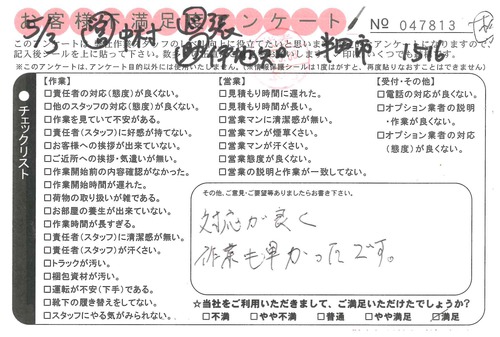 お客様不満足度アンケート
No 047813
5/3
中村
半田市
1516
※このアンケートは、アンケート目的以外には使用いたしません。
チェックリスト
【作業】
□責任者の対応(態度)が良くない。
□他のスタッフの対応(態度)が良くない。
□作業を見ていて不安がある。
□責任者(スタッフ)に好感が持てない。
□お客様への挨拶が出来ていない。
□ご近所への挨拶・気遣いが無い。
□作業開始前の内容確認がなかった。
□作業開始時間が遅れた。
□荷物の取り扱いが雑である。
□お部屋の養生が出来ていない。
□作業時間が長すぎる。
□責任者(スタッフ)に清潔感が無い。
□責任者(スタッフ)が汗くさい。
□トラックが汚い。
□梱包資材が汚い。
□運転が不安(下手)である。
□靴下の履き替えをしてない。
□スタッフにやる気がみられない。
【営業】
□見積もり時間に遅れた。
□見積もり時間が長い。
□営業マンに清潔感が無い。
□営業マンが煙草くさい。
□営業マンが汗くさい。
□営業態度が良くない。
□営業の説明と作業が一致してない。
【受付・その他】
□電話の対応が良くない。
□オプション業者の説明
・作業が良くない。
□オプション業者の対応
(態度)が良くない。
その他、ご意見・ご要望等ありましたらお書き下さい。
対応が良く
作業も早かったです。
☆当社をご利用いただきまして、ご満足いただけたでしょうか?
□不満 □やや不満 □普通 □やや満足 ☑満足